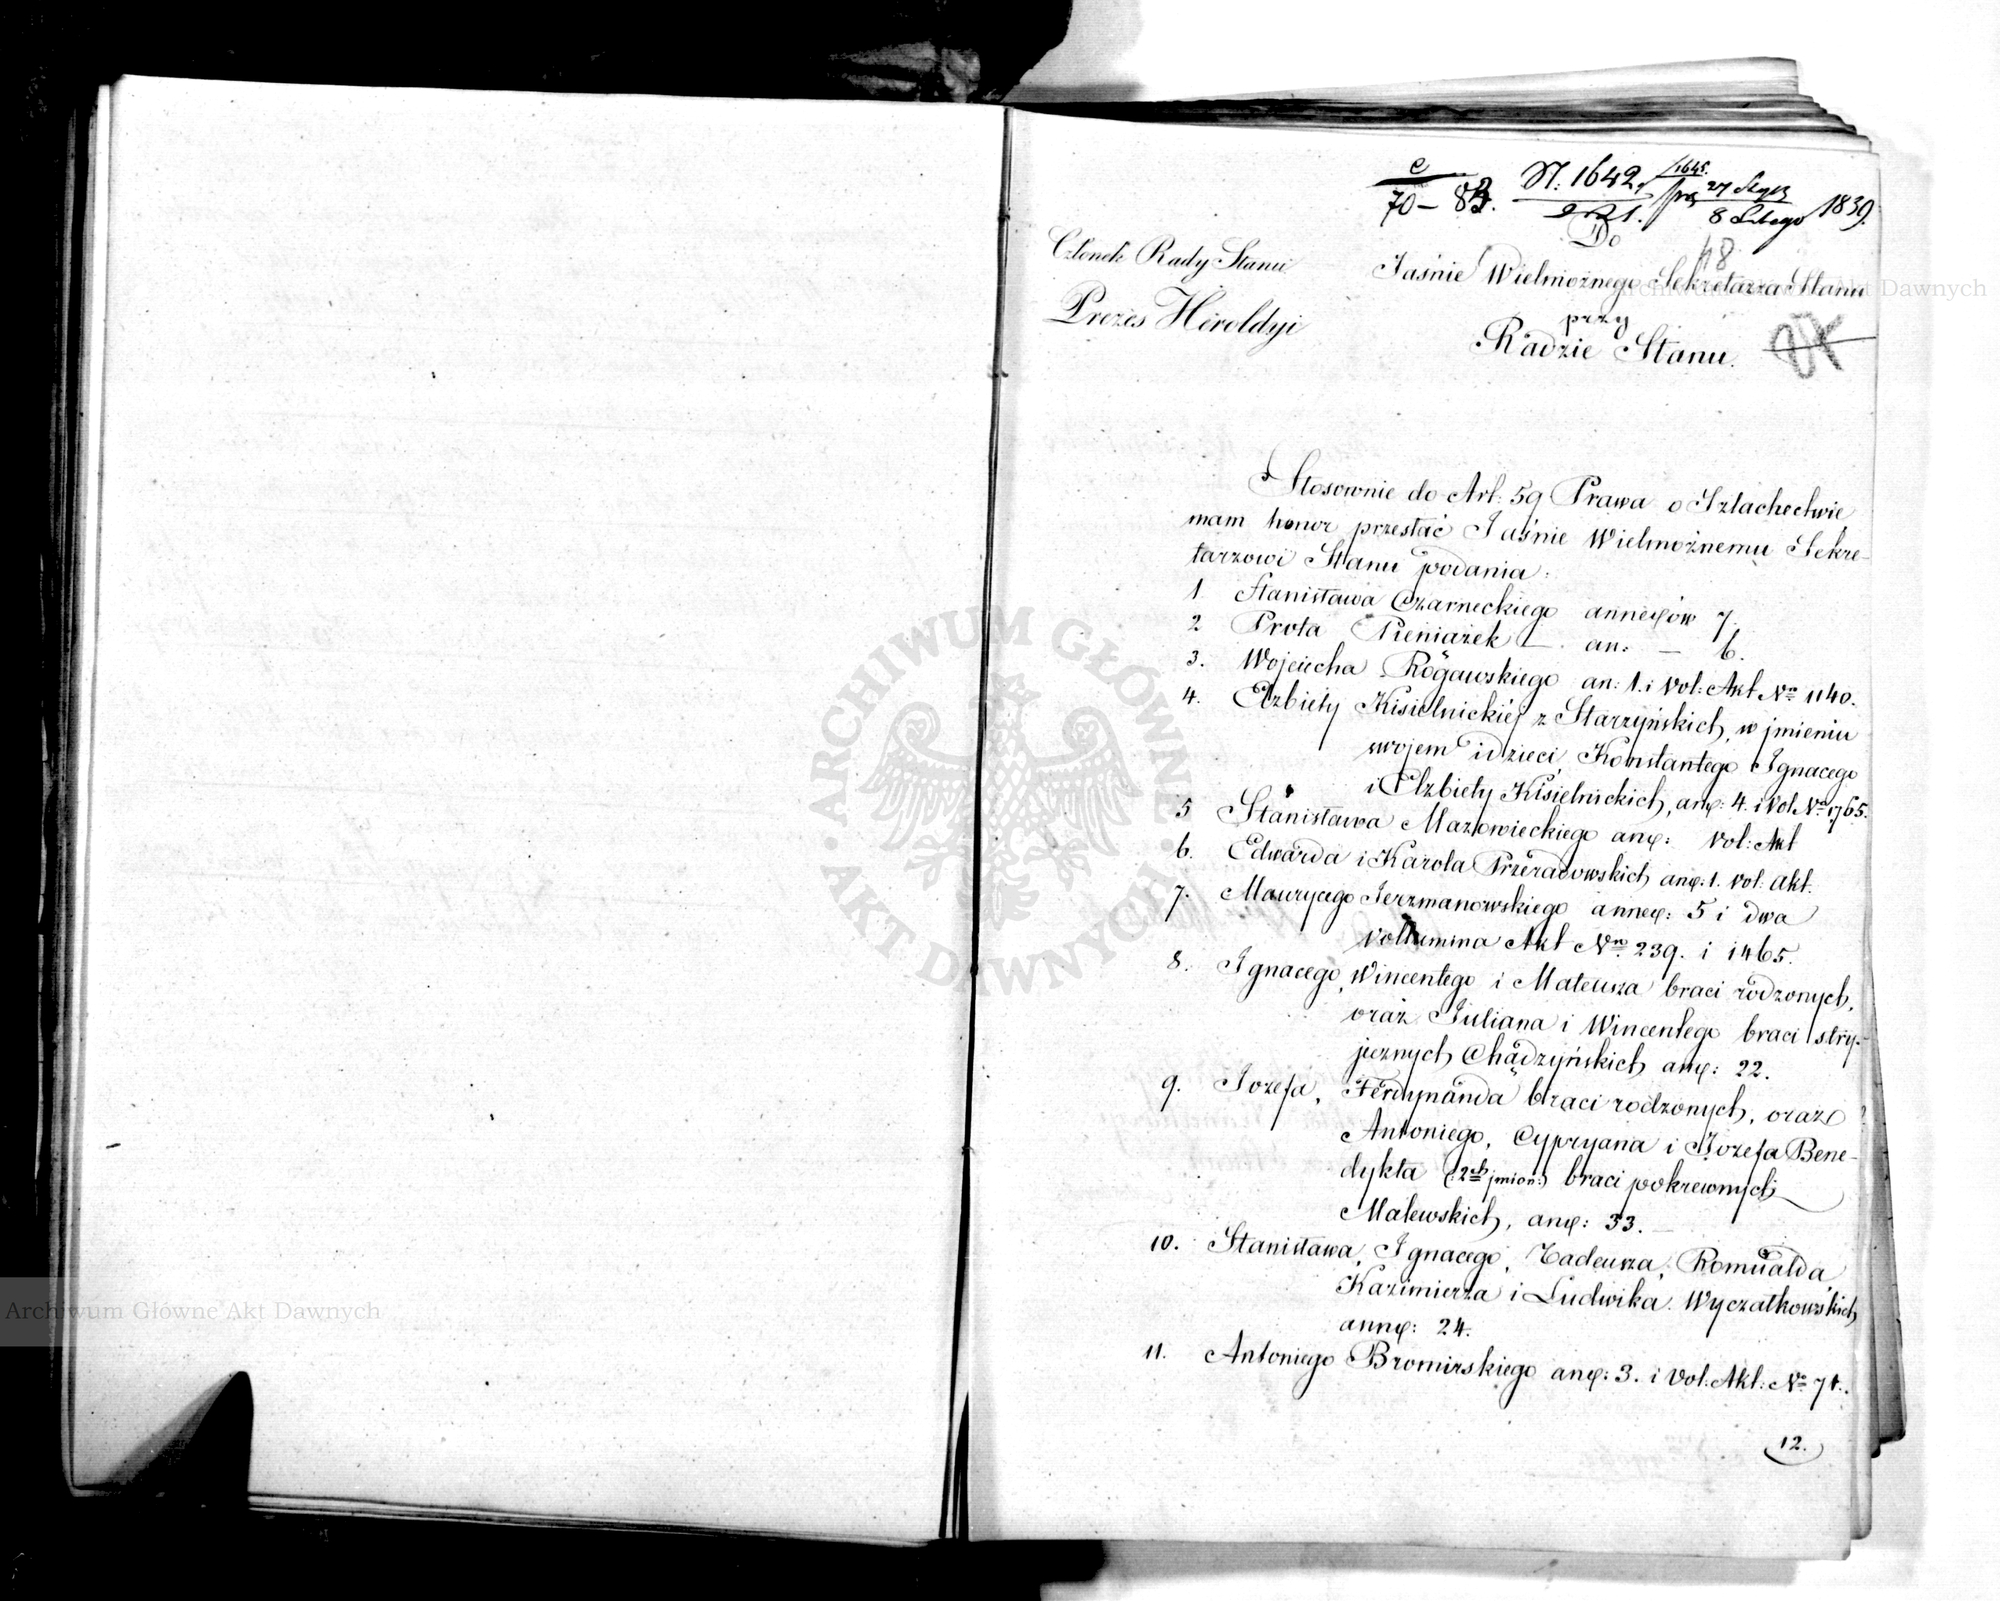 C
70 – 83.
N. 1642. 1645.
pr 27 Stycz 1839.
8 Lutego
48
Członek Rady Stanu
Prezes Heroldyi
Do
Jaśnie Wielmożnego Sekretarza Stanu
przy
Radzie Stanu.
Stosownie do Art: 59 Prawa o Szlachectwie
mam honor przesłać Jaśnie Wielmożnemu Sekre-
tarzowi Stanu podania:
1. Stanisława Czarneckiego annexów 7.
2 Prota Pieniążek — an: — 6.
3. Wojciecha Rogawskiego an: 1. i Vol: Akt No 1140.
4. Elżbiety Kisielnickiéj z Starzyńskich, w jmieniu
swojem i dzieci, Konstantego Ignacego
i Elżbiety Kisielnickich, anx: 4. i Vol No 1765.
5 Stanisława Mazowieckiego anx: Vol: Akt
6. Edwarda i Karola Przeradowskich anx: 1. Vol: Akt.
7. Maurycego Jerzmanowskiego annex: 5 i dwa
Volumina Akt No 239. i 1465.
8. Ignacego, Wincentego i Mateusza braci rodzonych,
oraz Juliana i Wincentego braci stry-
jecznych Chądzyńskich anx: 22.
9. Jozefa, Ferdynanda braci rodzonych, oraz
Antoniego, Cypryana i Jozefa Bene-
dykta (:2ch jmion:) braci pokrewnych
Malewskich, anx: 33. —
10. Stanisława, Ignacego, Tadeusza, Romualda,
Kazimierza i Ludwika Wyczałkowskich
annx: 24.
11. Antoniego Bromirskiego anx: 3. i Vol: Akt: No 71.
12.
ARCHIWUM GŁÓWNE AKT DAWNYCH
Archiwum Główne Akt Dawnych
Archiwum Główne Akt Dawnych